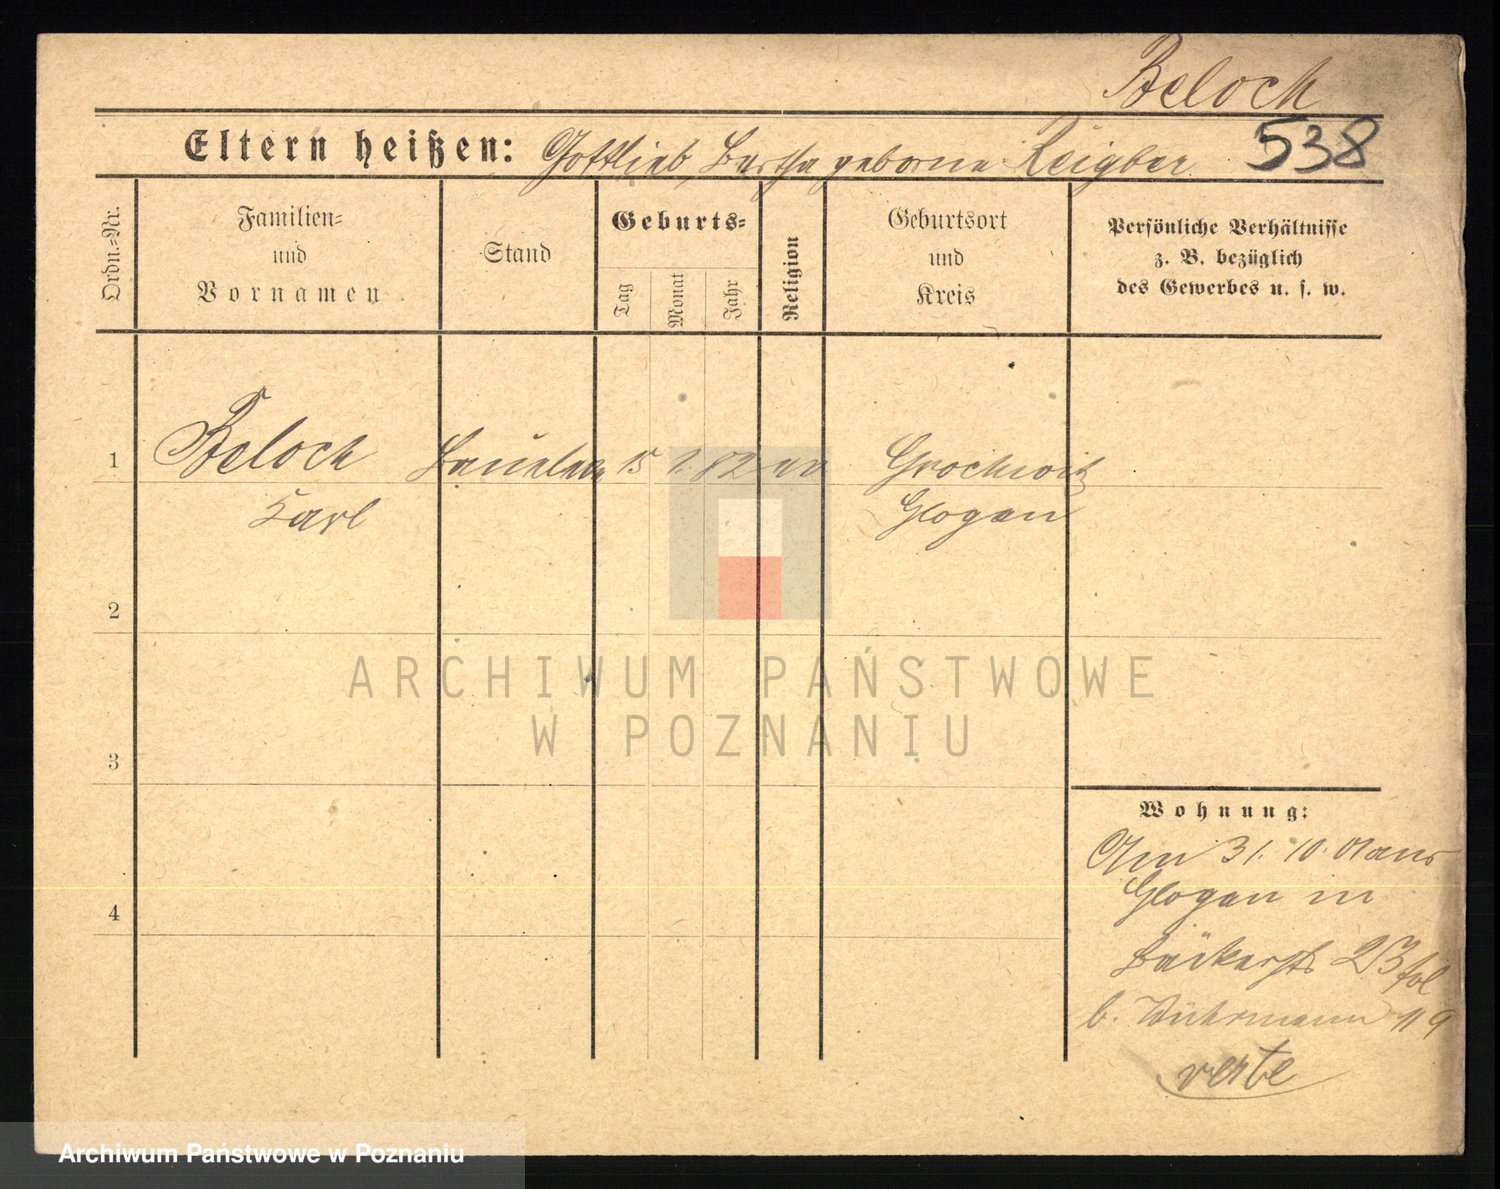 Beloch
Eltern heißen: Gottlieb, Bertha geborne Reigber 538
Ordn.=Nr.
Familien=
und
Vornamen
Stand
Geburts=
Tag
Monat
Jahr
Religion
Geburtsort
und
Kreis
Persönliche Verhältnisse
z. B. bezüglich
des Gewerbes u. s. w.
1 Beloch 15 2. 82 Grochwitz
Karl Glogau
2
3
4
ARCHIWUM PAŃSTWOWE
W POZNANIU
Wohnung:
Am 31. 10. 01 aus
Glogau in
Bäckerstr 23 fol
b. 119
verte
Archiwum Państwowe w Poznaniu